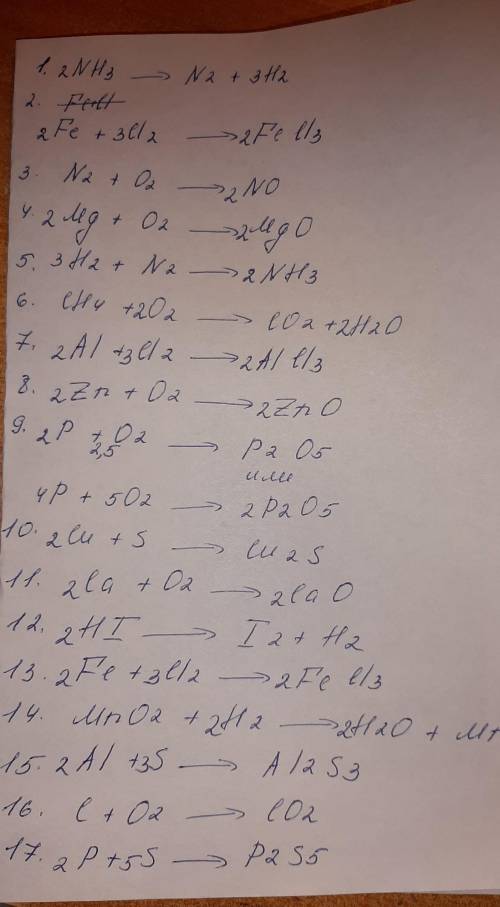 1. 2NH3 → N2 + 3H2
2. FeCl
2Fe + 3Cl2 → 2FeCl3
3. N2 + O2 → 2NO
4. 2Mg + O2 → 2MgO
5. 3H2 + N2 → 2NH3
6. CH4 + 2O2 → CO2 + 2H2O
7. 2Al + 3Cl2 → 2AlCl3
8. 2Zn + O2 → 2ZnO
9. 2P + O2 → P2O5
2,5 или
4P + 5O2 → 2P2O5
10. 2Cu + S → Cu2S
11. 2Ca + O2 → 2CaO
12. 2HI → I2 + H2
13. 2Fe + 3Cl2 → 2FeCl3
14. MnO2 + 2H2 → 2H2O + Mn
15. 2Al + 3S → Al2S3
16. C + O2 → CO2
17. 2P + 5S → P2S5